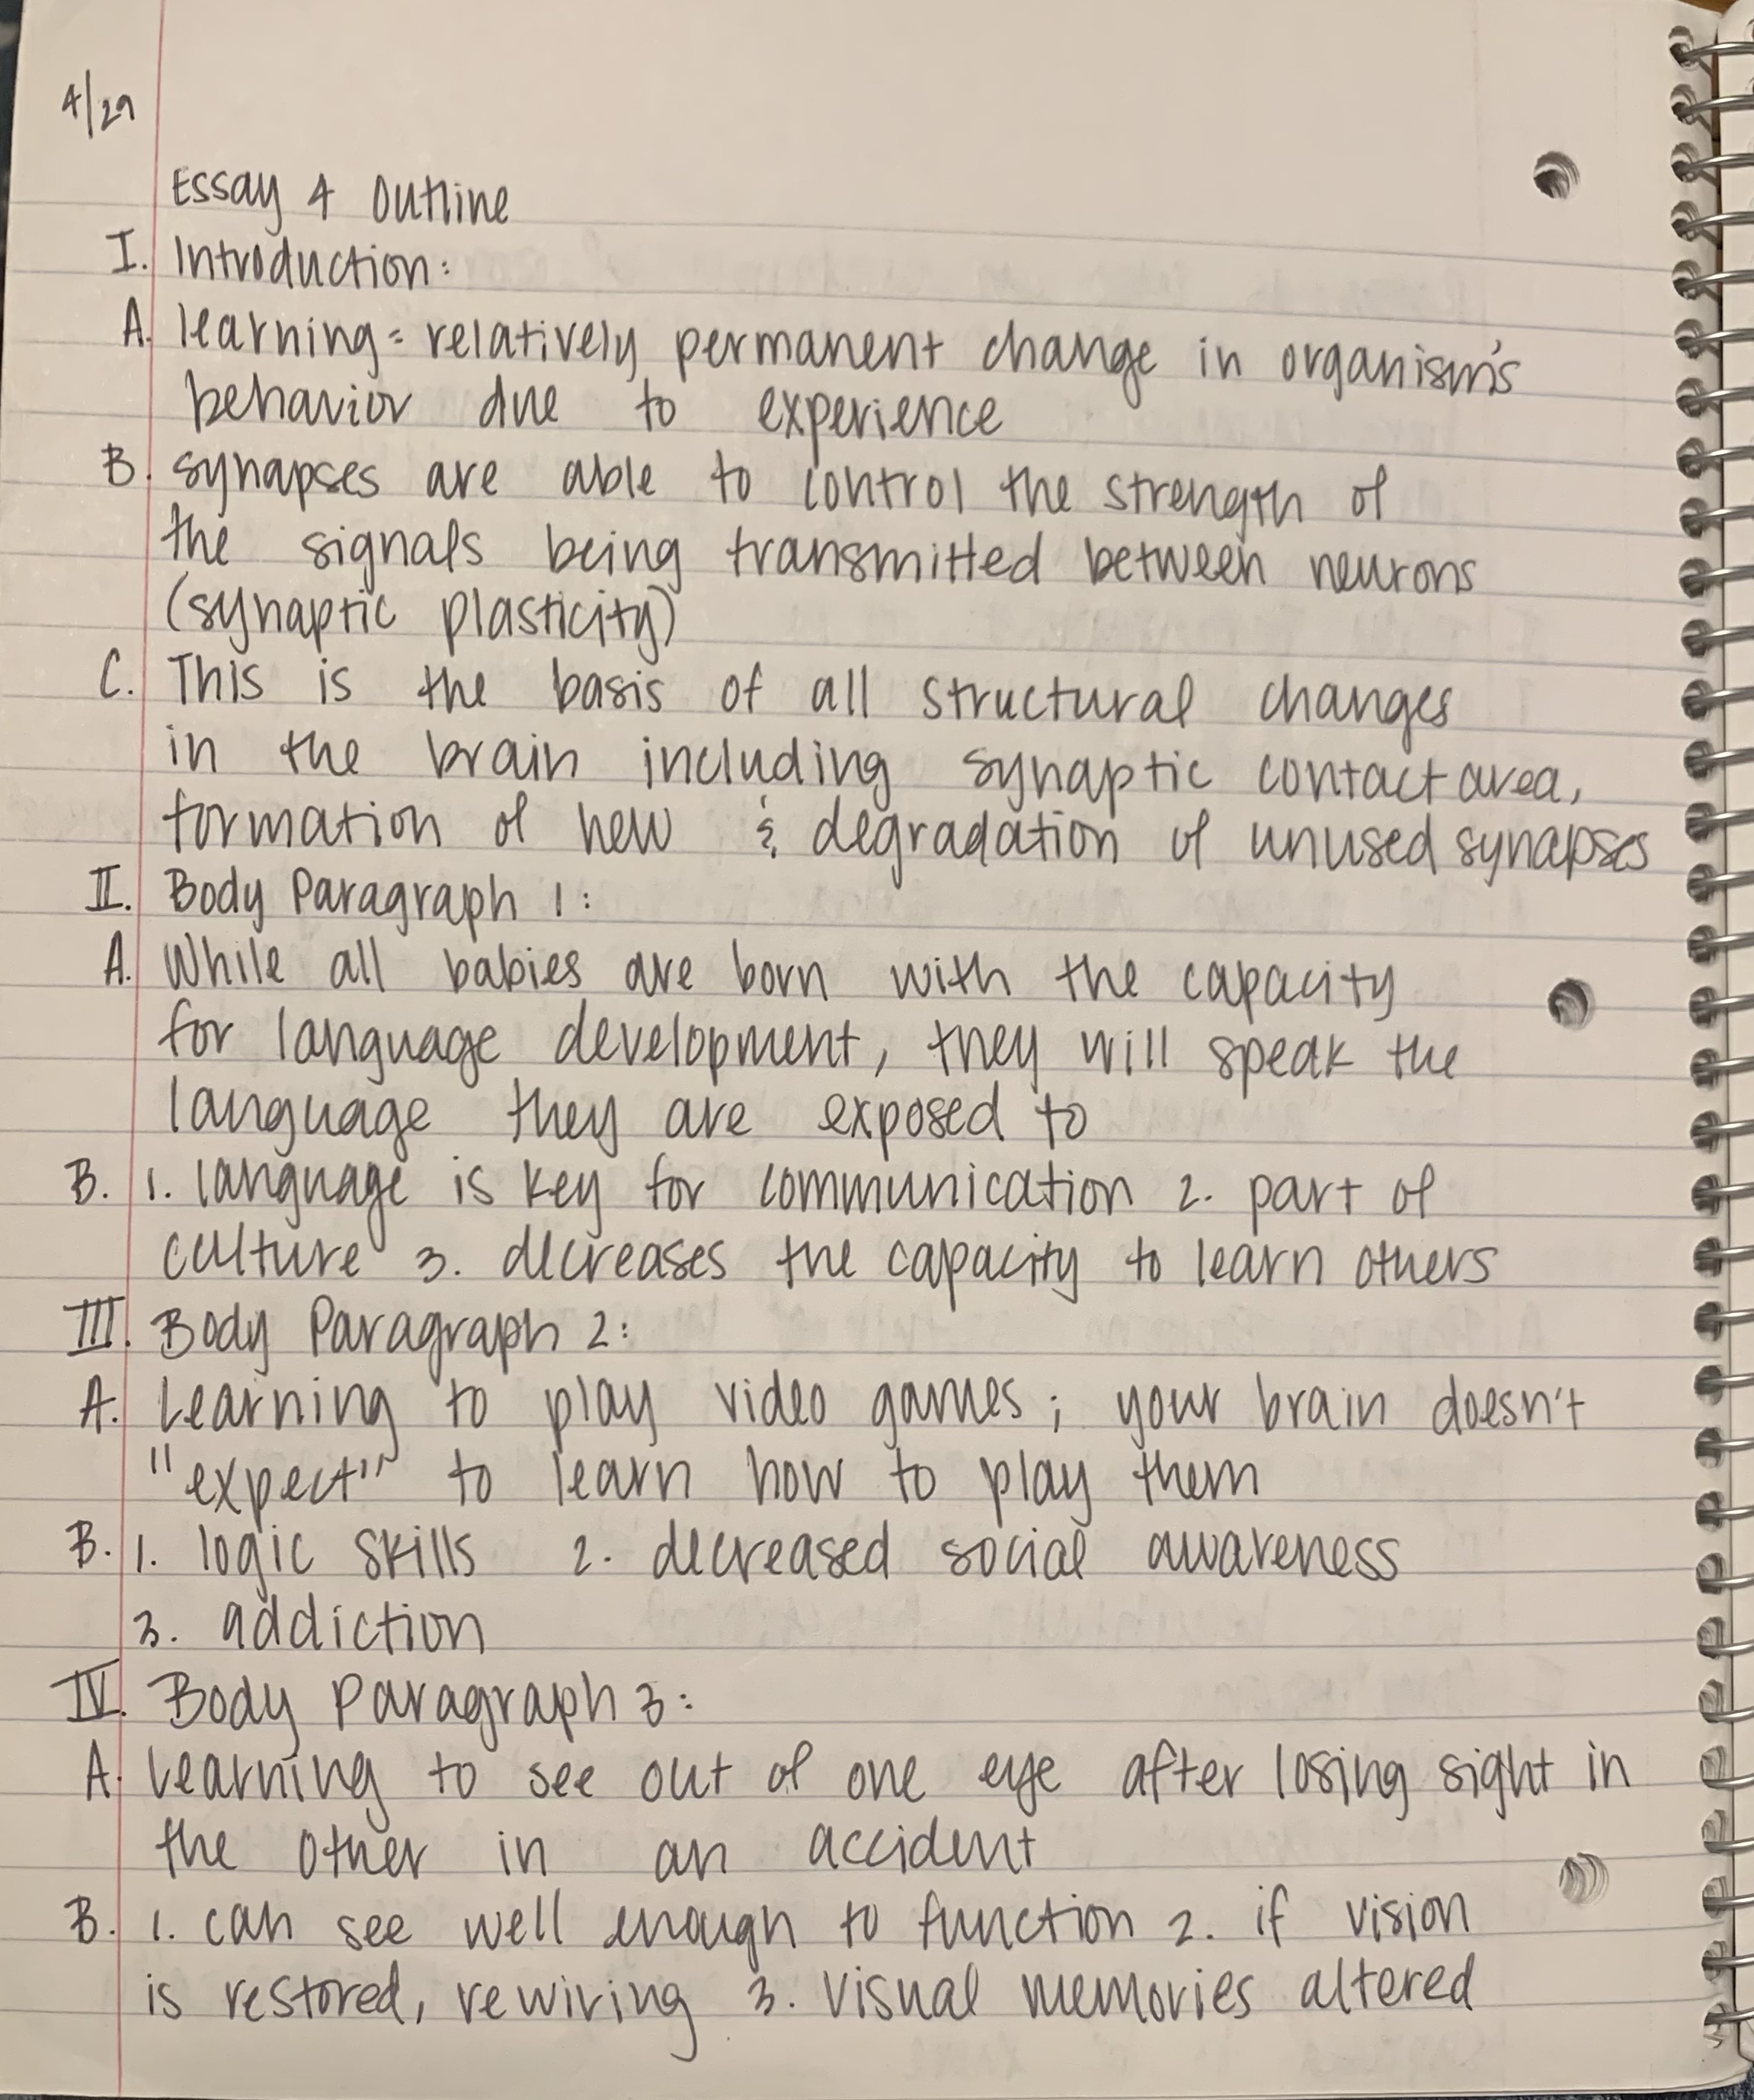 4/29
Essay 4 Outline
I. Introduction:
A. learning = relatively permanent change in organism's
behavior due to experience
B. synapses are able to control the strength of
the signals being transmitted between neurons
(synaptic plasticity)
C. This is the basis of all structural changes
in the brain including synaptic contact area,
formation of new & degradation of unused synapses
II. Body Paragraph 1:
A. While all babies are born with the capacity
for language development, they will speak the
language they are exposed to
B. 1. language is key for communication 2. part of
culture 3. decreases the capacity to learn others
III. Body Paragraph 2:
A. Learning to play video games; your brain doesn't
"expect" to learn how to play them
B. 1. logic skills 2. decreased social awareness
3. addiction
IV. Body Paragraph 3:
A. Learning to see out of one eye after losing sight in
the other in an accident
B. 1. can see well enough to function 2. if vision
is restored, rewiring 3. visual memories altered